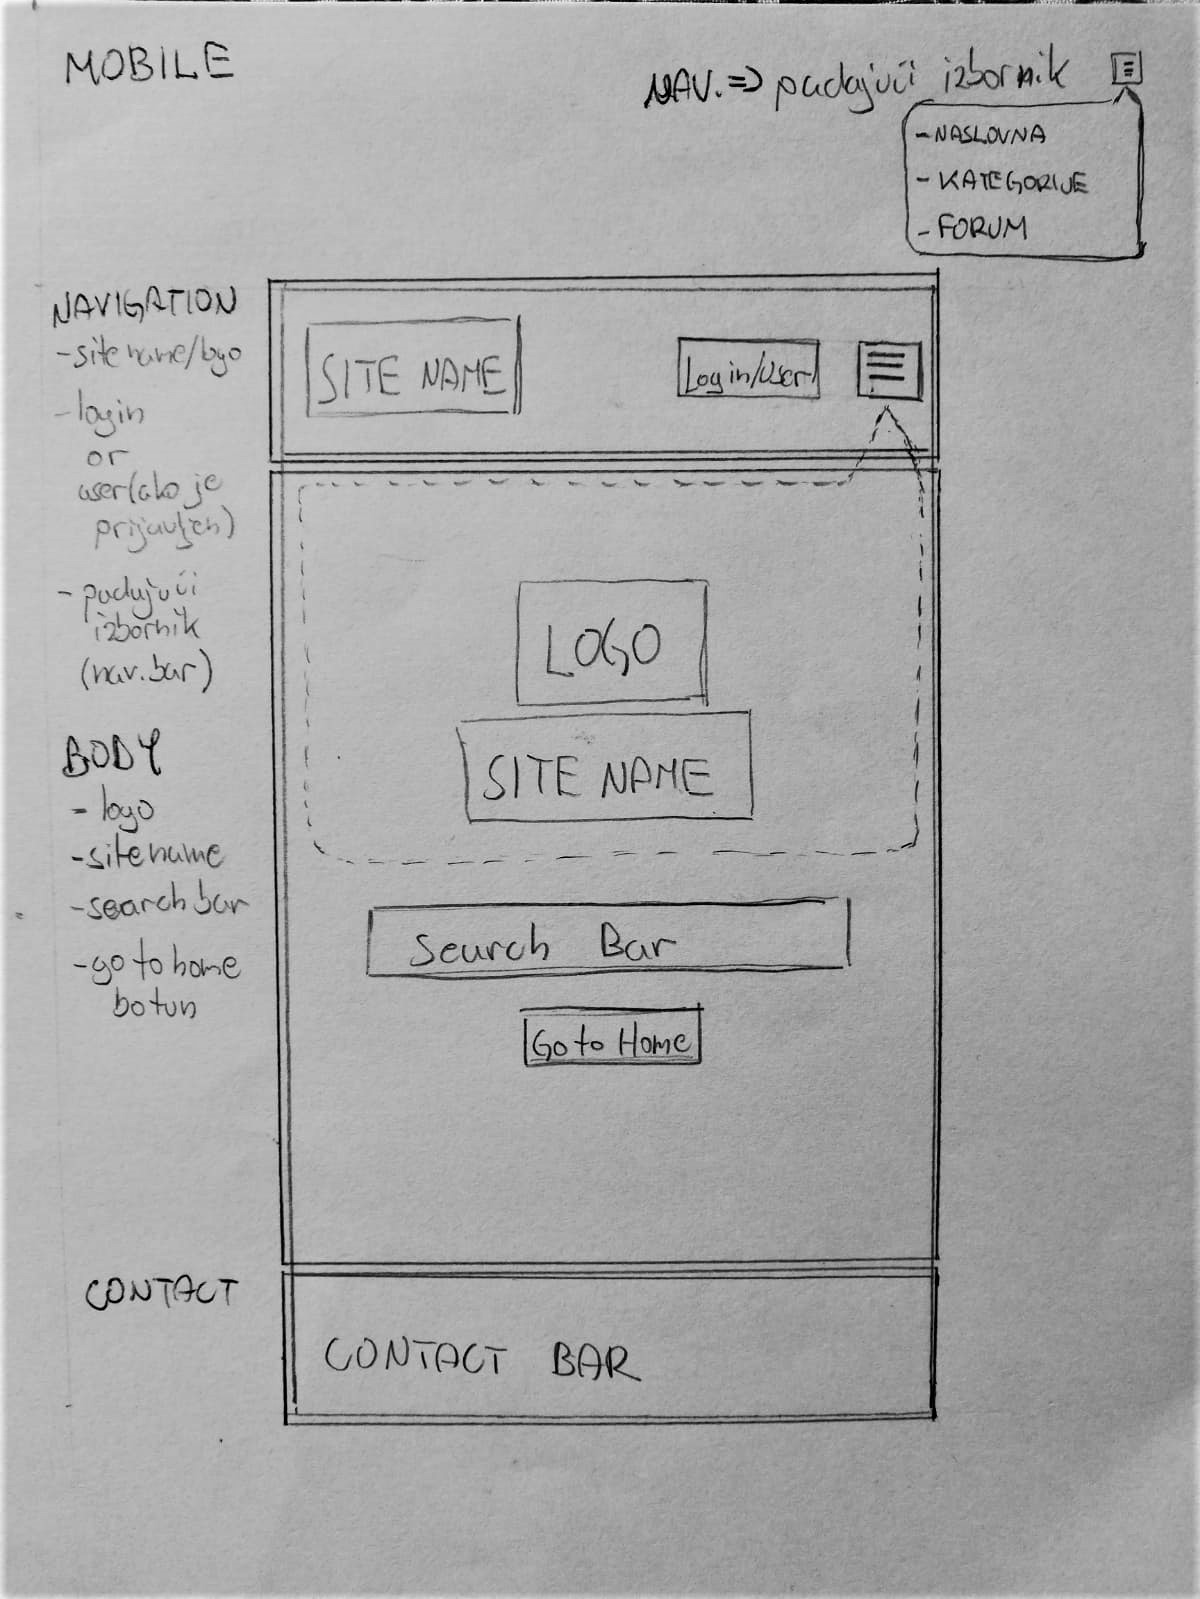 MOBILE
NAV. => padajući izbornik
- NASLOVNA
- KATEGORIJE
- FORUM
NAVIGATION
- site name/logo
- login
or
user(ako je
prijavljen)
- padajući
izbornik
(nav.bar)
BODY
- logo
- site name
- search bar
- go to home
botun
CONTACT
SITE NAME
Login/User
LOGO
SITE NAME
Search Bar
Go to Home
CONTACT BAR